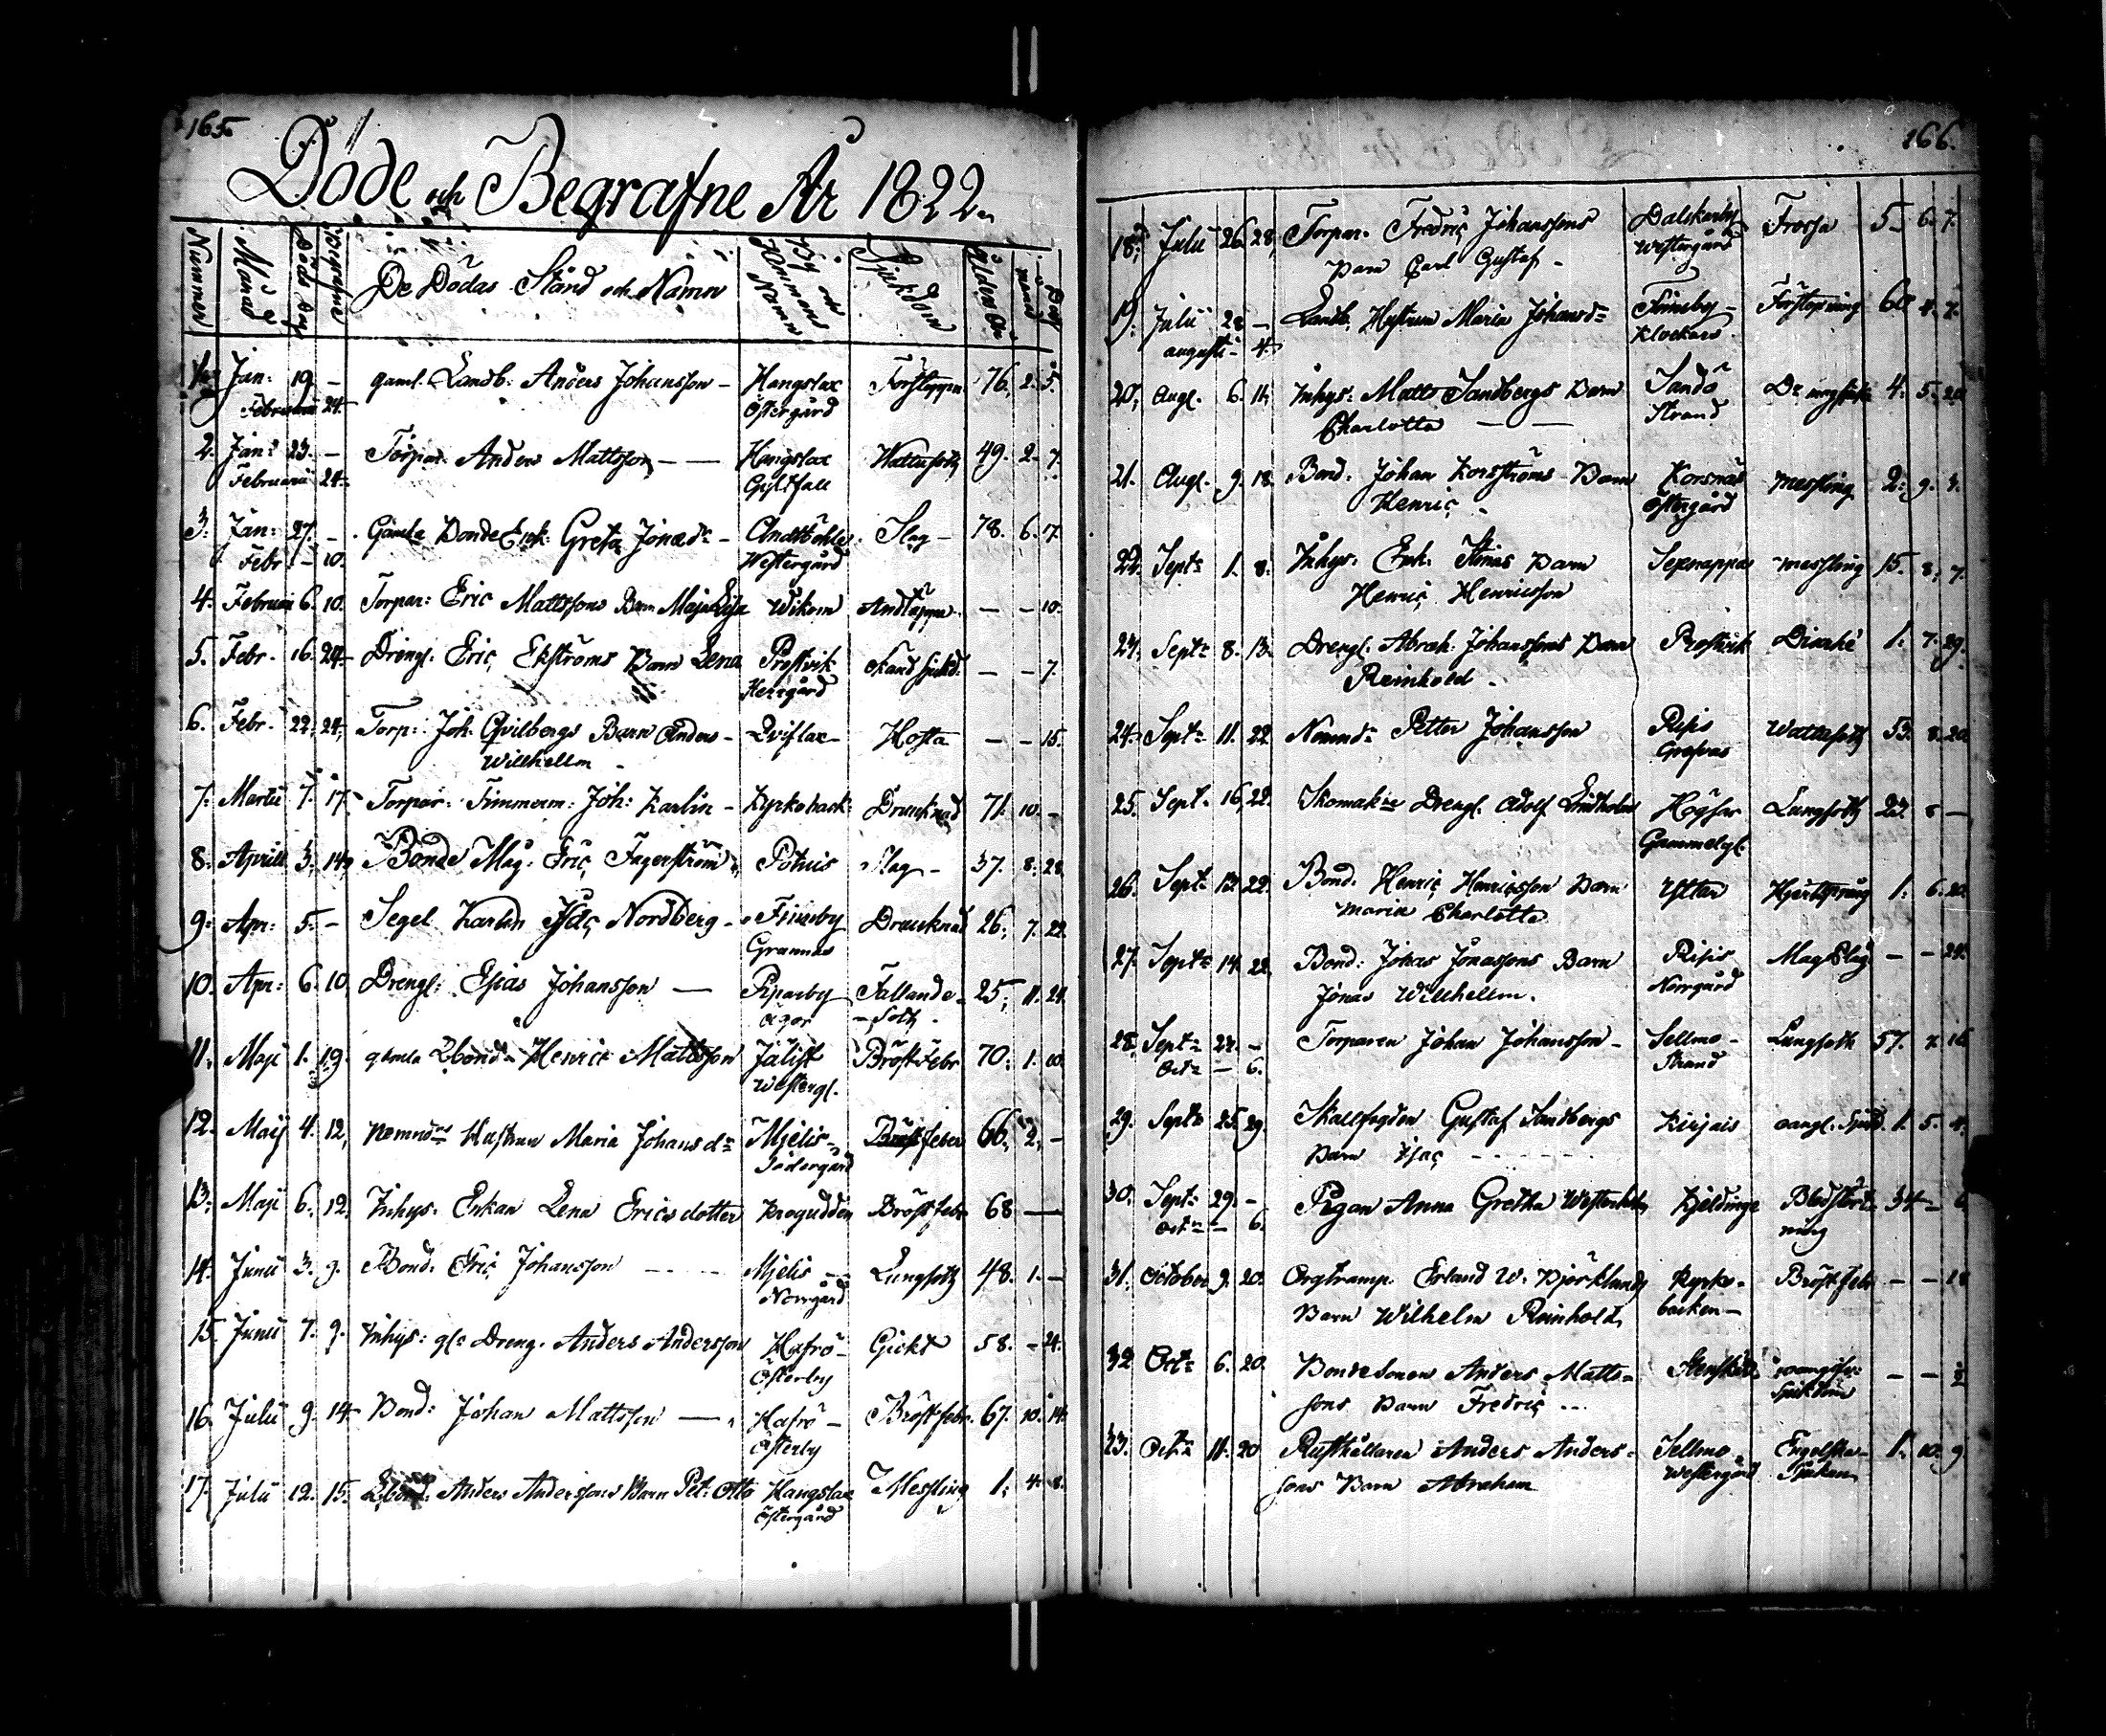 165.
Döde och Begrafne År 1822.
Nummer Månad Döds Dag Begrafne De Dödas Stånd och Namn By och Hemmans Namn Sjukdom Ålder År månad Dag
1. Jan: 19. – gaml. Landb: Anders Johansson – Hangslax Förstoppn 76. 2. 5.
Februarii 24. Östergård
2. Jan: 23. – Torpar. Anders Mattsson – – Hangslax Wattusot 49. 2. 7.
Februarii 24. Gyldfall
3. Jan: 27. – Gamla Bonde Enk: Greta Jonsd:r – Westergård Slag – 78. 6. 17.
Febr. – 10.
4. Februari 6. 10. Torpar: Eric Mattssons Barn Maja Lisa Wikom Andtäppa – – 10.
5. Febr. 16. 24. Drengl. Eric Ekströms Barn Lena Prostvik – – 7.
Herrgård
6. Febr. 22. 24. Torp: Joh: Qvilbergs Barn Anders – Qviflax – Hosta – – 15.
Willhellm –
7. Martii 7. 17. Torpar: Timmerm: Joh: Karlin – Kyrkoback: Drunknad 71. 10. –
8. Aprill 3. 14. Bonde Måg: Eric Fagerström Pötuis Slag – 37. 8. 28.
9. Apr: 5. – Segel Karlen Isac Nordberg – Finnby Drunknad 26. 7. 22.
Grannas
10. Apr: 6. 10. Drengl: Esias Johansson — Piparby Fallande – 25. 11. 24.
ägor – Sot
11. Maji 1. 19. gamla Henric Mattsson Jälist Bröstfebr 70. 1. 10.
Westergl.
12. Maij 4. 12. Nemnd:ns Hustrun Maria Johansd:r Mjelis – Bröstfeber 66. 2. –
Södergård
13. Maji 6. 12. Inhys. Enkan Lena Ericsdotter Krogudden Bröstfebr 68 —
14. Junii 3. 9. Bond: Eric Johansson – – – Mjelis – Lungsot 48. 1. –
Norrgård
15. Junii 7. 9. Inhys: gl: Dreng. Anders Andersson Hafrö – Gickt 58. – 24.
Österby
16. Julii 9. 14. Bond: Johan Mattsson — Hafrö – Bröstfebr. 67. 10. 14.
Österby
17. Julii 12. 15. Anders Anderssons Barn Pet: Otto Hangslax Messling 1. 4. 8.
Östergård
166.
18. Julii 26. 28. Torpar. Fredric Johanssons Dalskarby Frossa 5. 6. 7.
Barn Carl Gustaf – Westergård
19. Julii 28. – Landb: Hustrun Maria Johansd:r Finneby – Förstopning 60 4. 7.
augusti – 4. Klockars
20. Aug. 6. 11. Inhys: Matts Sandbergs Barn Sandö 4. 5. 20.
Charlotta — — Strand
21. Aug. 9. 18. Bond. Johan Korsströms Barn Korsnäs Messling 2. 9. 3.
Henric – Östergård
22. Sept: 1. 8. Inhys: Enk. Stinas Barn Sexnappas messling 15. 8. 7.
Henric Henricsson
23. Sept: 8. 13. Drengl. Abrah: Johanssons Barn Prostvik Diarhé 1. 7. 29.
Reinhold –
24. Sept: 11. 22. Nemnd: Petter Johansson Risis Wattusot 53. 8. 20.
Grefvas
25. Sept. 16. 22. Skomak:re Drengl. Adolf Lindholm Högsar Lungsot 23. 8 –
Gammelgl.
26. Sept: 22. Bond. Henric Henricsson Barn Ytter Hjertsprång 1. 6. 20.
Maria Charlotta
27. Sept: 14. 22. Bond: Johas Jonassons Barn Risis Mag Plåg – – 24.
Jonas Willhellm. Norrgård
28. Sept: – Torparen Johan Johansson – Sellmo – Lungsot 57. 7. 16
Oct: – 6. Strand
29. Sept: 25. 29. Gustaf Sandbergs Kirjais oangl. Sjukd. 1. 5. 4.
Barn Isac – – – –
30. Sept: 29. – Pigan Anna Gretha Kjeldinge Blodstört- 34 – 6
Oct: – 6. ning
31. October 9. 20. Orgtramp. Erland W. Björklunds Kyrko- Bröstfebr – – 18
Barn Wilhelm Reinhold backen –
32. Oct: 6. 20. Bondesonen Anders Matts- – – ½
sons Barn Fredric – – Sjukdom
33. Oct: 11. 20 Rusthållaren Anders Anders- Sellmo Engelska 1. 10. 9.
sons Barn Abraham Westergård Sjukan